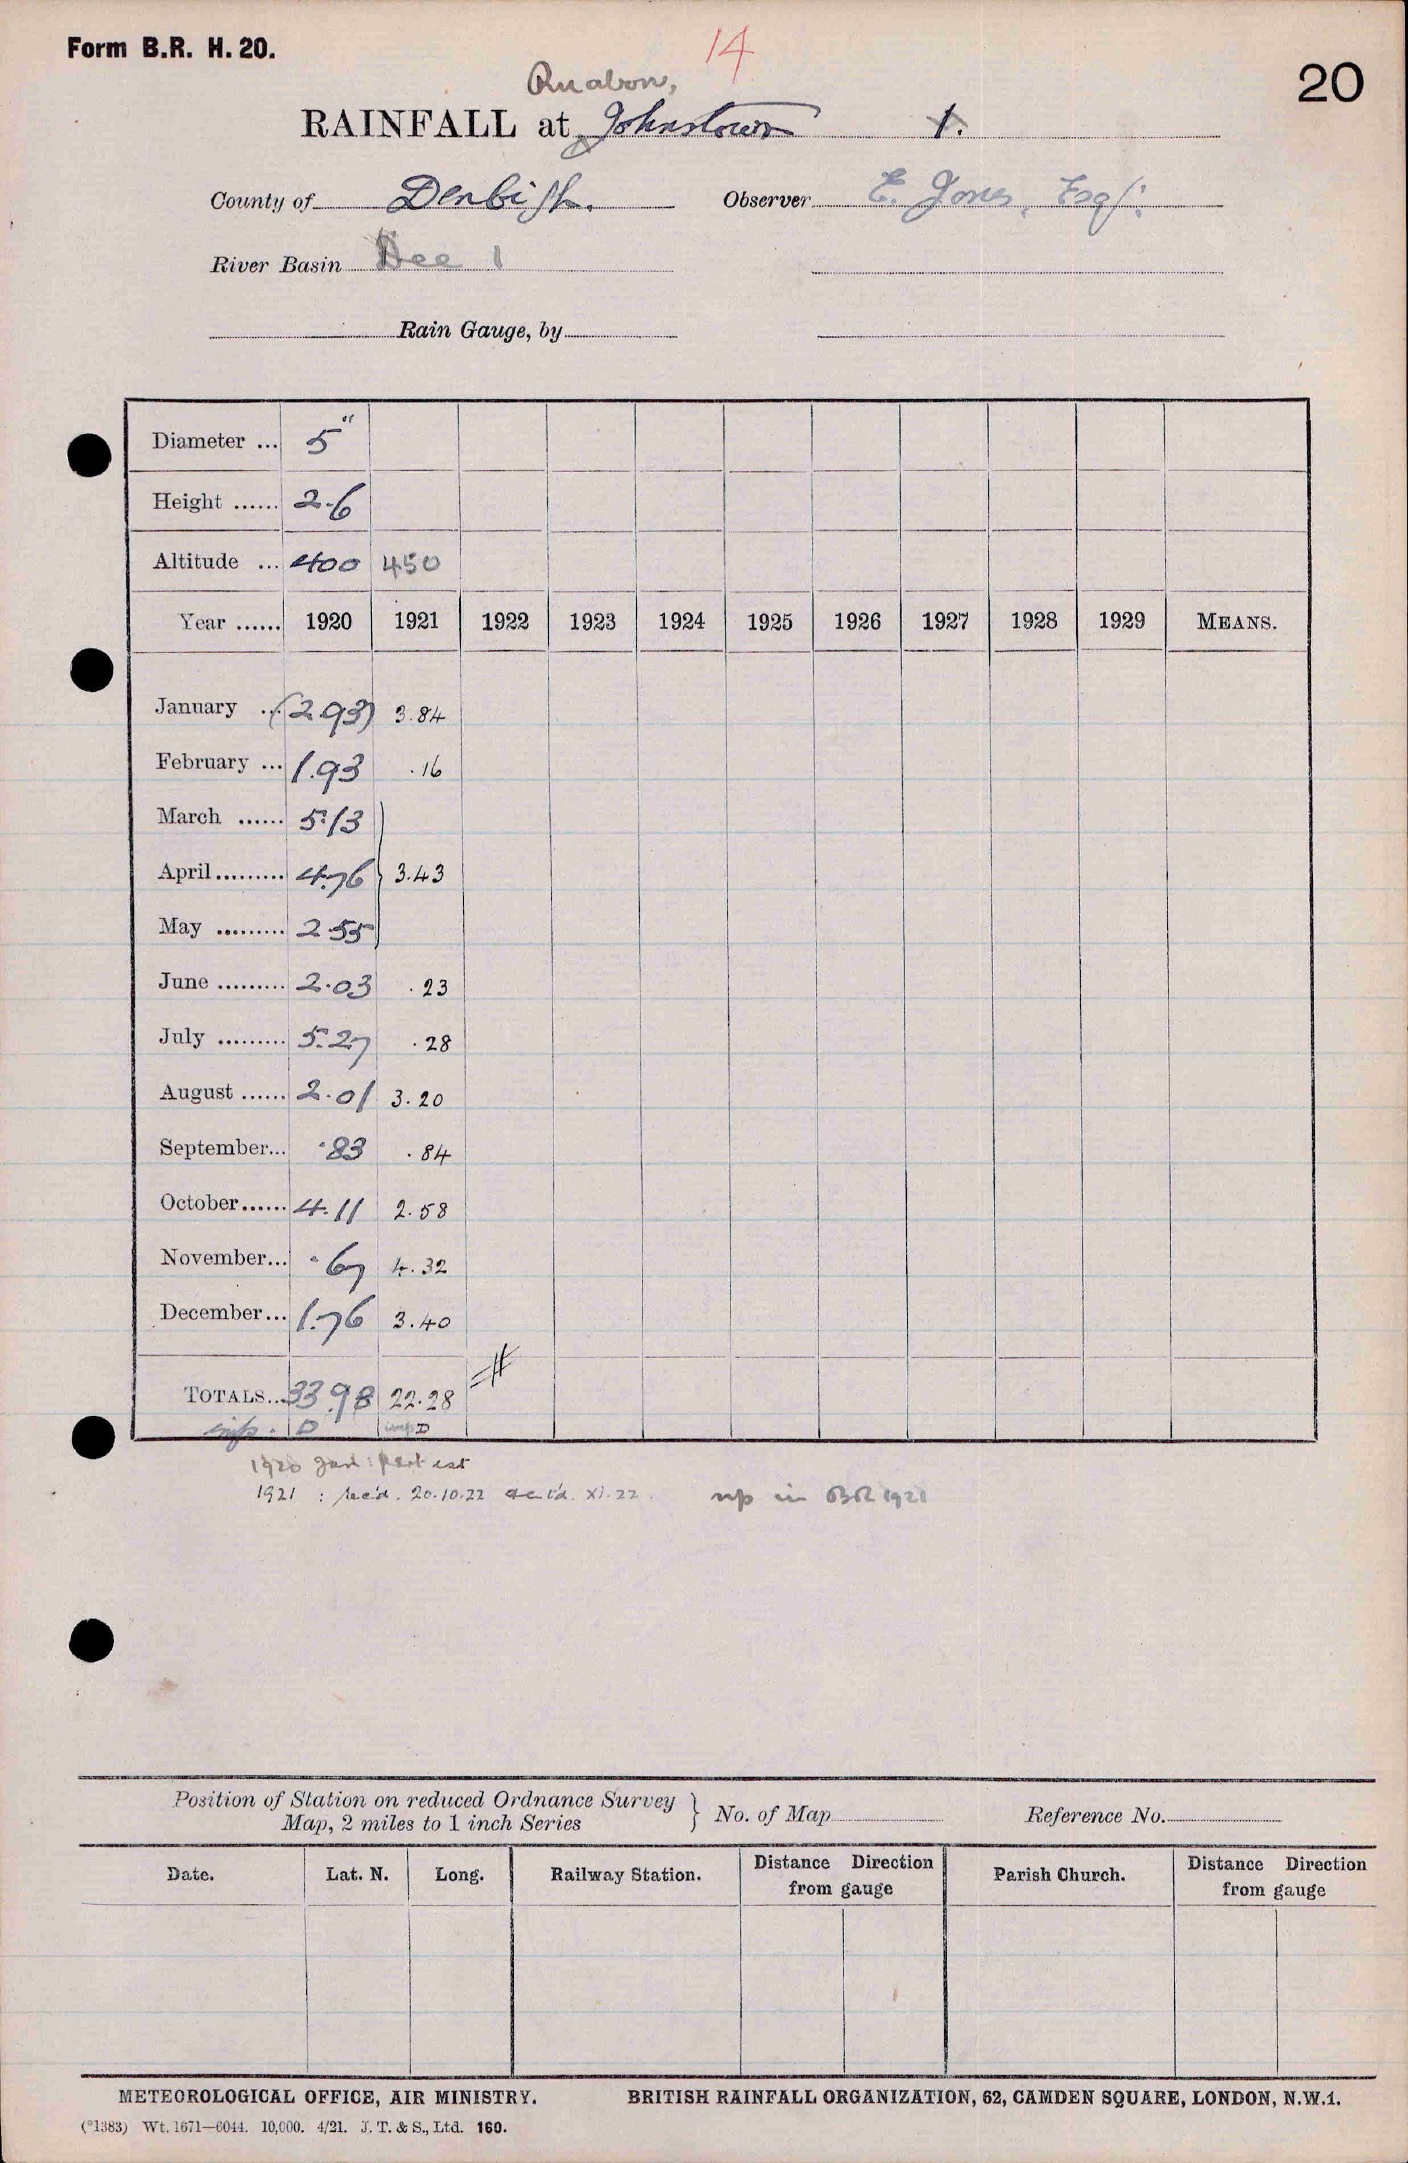 Form B.R. H. 20.
14
20
Ruabon,
RAINFALL at Johnstown 1.
County of Denbigh. Observer E. Jones, Esq.
River Basin Dee 1
Rain Gauge, by
Diameter ... 5"
Height ...... 2-6
Altitude ... 400 450
Year ...... 1920 1921 1922 1923 1924 1925 1926 1927 1928 1929 MEANS.
January ... (2.93) 3.84
February ... 1.93 .16
March ...... 5.13
April ......... 4.76 } 3.43
May ......... 2.55
June ......... 2.03 .23
July ......... 5.27 .28
August ...... 2.01 3.20
September... .83 .84
October...... 4.11 2.58
November... .67 4.32
December... 1.76 3.40
TOTALS... 33.98 22.28
D D
1920 Jan: part est
1921 : rec'd. 20.10.22 XI.22. up in BR 1921
Position of Station on reduced Ordnance Survey
Map, 2 miles to 1 inch Series } No. of Map Reference No.
Date. Lat. N. Long. Railway Station. Distance Direction from gauge Parish Church. Distance Direction from gauge
METEOROLOGICAL OFFICE, AIR MINISTRY. BRITISH RAINFALL ORGANIZATION, 62, CAMDEN SQUARE, LONDON, N.W.1.
(*1383) Wt. 1671—6044. 10,000. 4/21. J. T. & S., Ltd. 160.